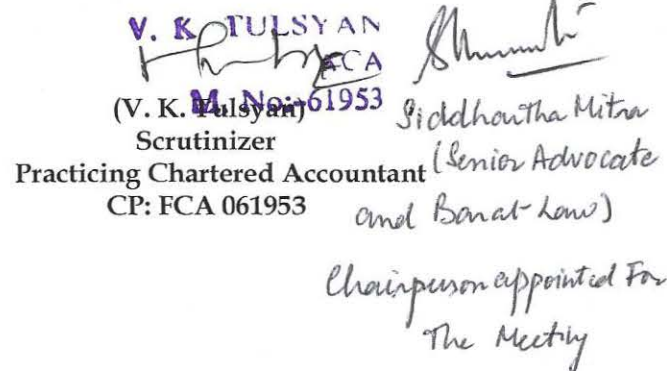 V. K. TULSYAN
FCA
M. No:-61953
(V. K. Tulsyan)
Scrutinizer
Practicing Chartered Accountant
CP: FCA 061953
Siddhartha Mitra
(Senior Advocate
and Barat-Law)
Chairperson appointed For
The Meeting